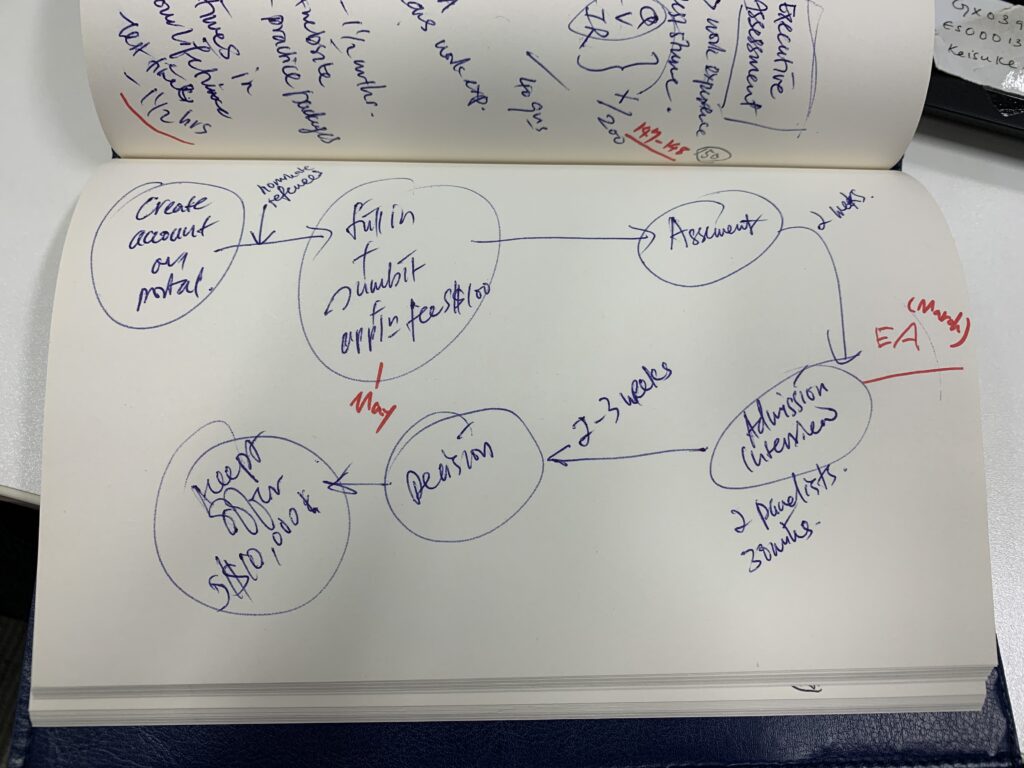 Executive
Assessment
work experience
Q
V
IR
/200
147-148
50
40 qns
work exp.
- 1 1/2 mths.
website
practice/packages
times in
- 1 1/2 hrs
Gx039
ES00013
Keisuke
Create
account
on
portal.
nominate
referees
full in
+
sumbit
appln fee S$100
May
Assesment
2 weeks.
EA (March)
Admission
interview
2 panelists.
30mins.
2-3 weeks
Decision
Accept
offer
S$10,000